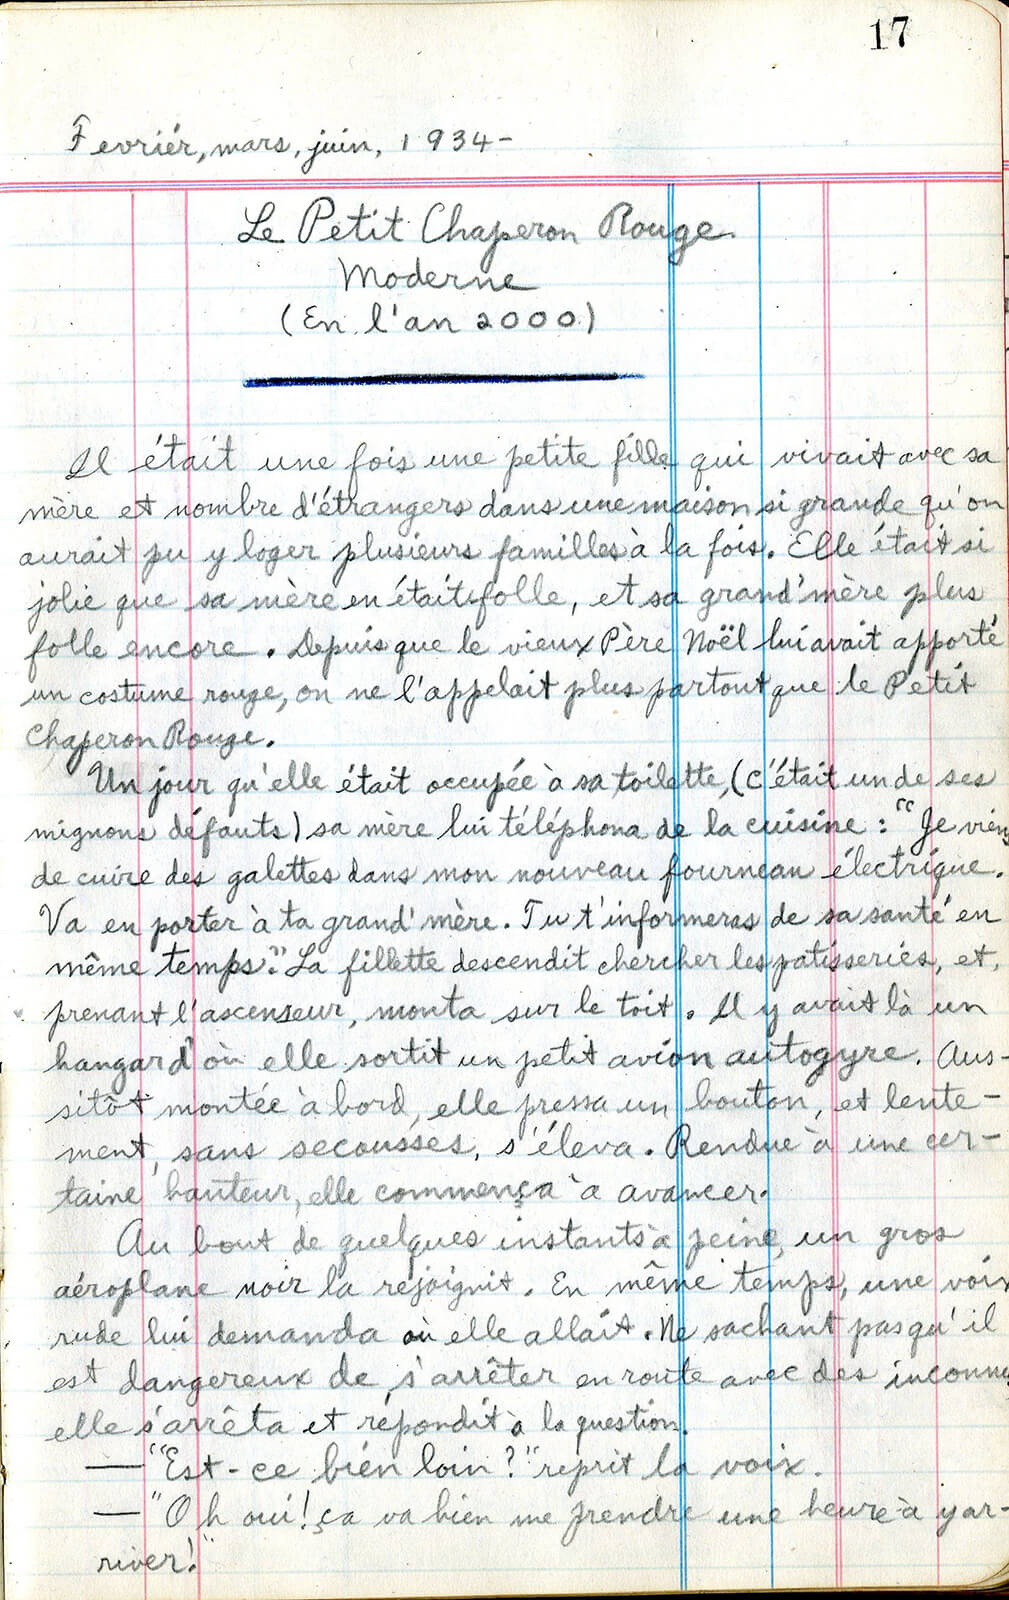 17
Fevriér, mars, juin, 1934-
Le Petit Chaperon Rouge
Moderne
(En l'an 2000)
Il était une fois une petite fille qui vivait avec sa
mère et nombre d'étrangers dans une maison si grande qu'on
aurait pu y loger plusieurs familles à la fois. Elle était si
jolie que sa mère en était folle, et sa grand'mère plus
folle encore. Depuis que le vieux Père Noël lui avait apporté
un costume rouge, on ne l'appelait plus partout que le Petit
Chaperon Rouge.
Un jour qu'elle était occupée à sa toilette, (c'était un de ses
mignons défauts) sa mère lui téléphona de la cuisine : "Je viens
de cuire des galettes dans mon nouveau fourneau électrique.
Va en porter à ta grand'mère. Tu t'informeras de sa santé en
même temps." La fillette descendit chercher les patisseries, et,
prenant l'ascenseur, monta sur le toit. Il y avait là un
hangard d'où elle sortit un petit avion autogyre. Aus-
sitôt montée à bord, elle pressa un bouton, et lente-
ment, sans secousses, s'éleva. Rendue à une cer-
taine hauteur, elle commença à avancer.
Au bout de quelques instants à peine, un gros
aéroplane noir la rejoignit. En même temps, une voix
rude lui demanda où elle allait. Ne sachant pas qu'il
est dangereux de s'arrêter en route avec des inconnus
elle s'arrêta et répondit à la question.
— "Est-ce bien loin?" reprit la voix.
— "Oh oui! ça va bien me prendre une heure à y ar-
river!"